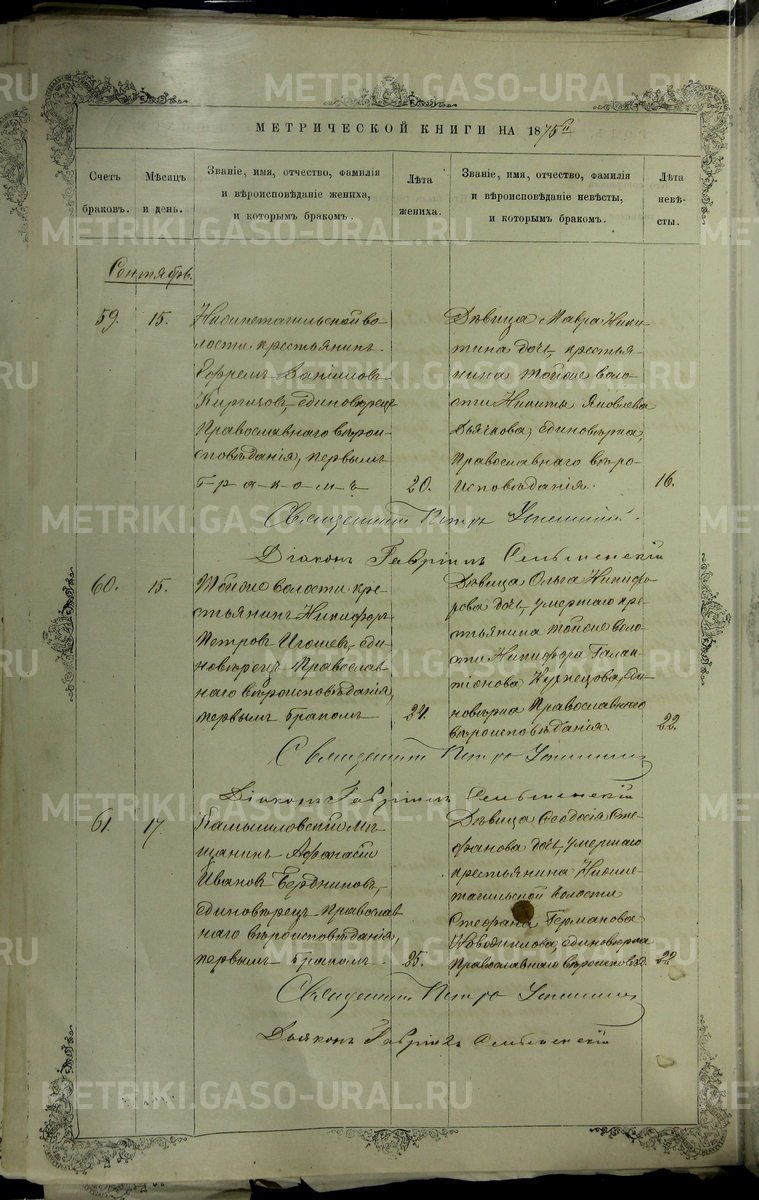 METRIKI.GASO-URAL.RU
МЕТРИЧЕСКОЙ КНИГИ НА 1875й
Счетъ браковъ.
Мѣсяцъ и день.
Званіе, имя, отчество, фамилія
и вѣроисповѣданіе жениха,
и которымъ бракомъ.
Лѣта жениха.
Званіе, имя, отчество, фамилія
и вѣроисповѣданіе невѣсты,
и которымъ бракомъ.
Лѣта невѣ-
сты.
Сентябрь.
59.
15.
Нижнетагильской во-
лости крестьянинъ
Ефремъ Даніиловъ
единовѣрецъ
Православнаго вѣрои-
сповѣданія, первымъ
бракомъ
20.
Дѣвица Мавра Ники-
тина дочь, крестья-
нина тойже воло-
сти Никиты Яковлева
Дьячкова, единовѣрка,
Православнаго вѣро-
исповѣданія.
16.
Священникъ Петръ
Діаконъ Гавріилъ
60.
15.
Тойже волости кре-
стьянинъ Никифоръ
Петровъ Игошевъ, еди-
новѣрецъ Православ-
наго вѣроисповѣданія,
первымъ бракомъ
24.
Дѣвица Ольга Никифо-
рова дочь, умершаго кре-
стьянина тойже воло-
сти Никифора Галак-
тіонова Кузнецова, еди-
новѣрка Православнаго
вѣроисповѣданія.
22.
Священникъ Петръ
Діаконъ Гавріилъ
61.
17.
Камышловскій мѣ-
щанинъ Афанасій
Ивановъ Бердниковъ,
единовѣрецъ Православ-
наго вѣроисповѣданія,
первымъ бракомъ
25.
Дѣвица Ѳеодосія Сте-
фанова дочь, умершаго
крестьянина Нижне-
тагильской волости
Стефана Германова
единовѣрка
Православнаго вѣроисповѣд.
22
Священникъ Петръ
Діаконъ Гавріилъ